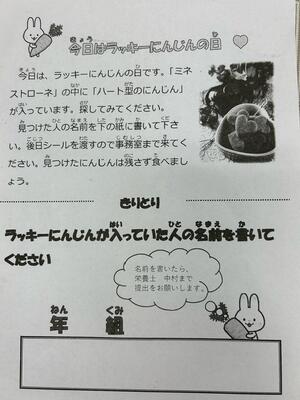 今日はラッキーにんじんの日
今日は、ラッキーにんじんの日です。「ミネ
ストローネ」の中に「ハート型のにんじん」
が入っています。探してみてください。
見つけた人の名前を下の紙に書いて下さ
い。後日シールを渡すので事務室まで来てく
ださい。見つけたにんじんは残さず食べまし
ょう。
きりとり
ラッキーにんじんが入っていた人の名前を書いて
ください
名前を書いたら、
栄養士 中村まで
提出をお願いします。
年 組